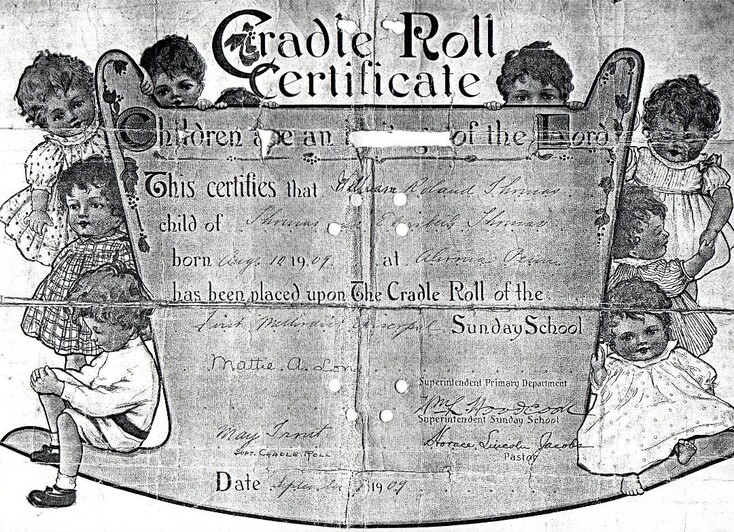 Cradle Roll
Certificate
Children are an of the Lord
This certifies that William Roland Thomas
child of Thomas Thomas
born Aug. 10 1909 at Altoona Penna.
has been placed upon The Cradle Roll of the
First Methodist Episcopal Sunday School
Mattie A. Long
Superintendent Primary Department
Wm L Woodcock
Superintendent Sunday School
May Trout
Supt. Cradle Roll
Horace Lincoln Jacobs
Pastor
Date 1909